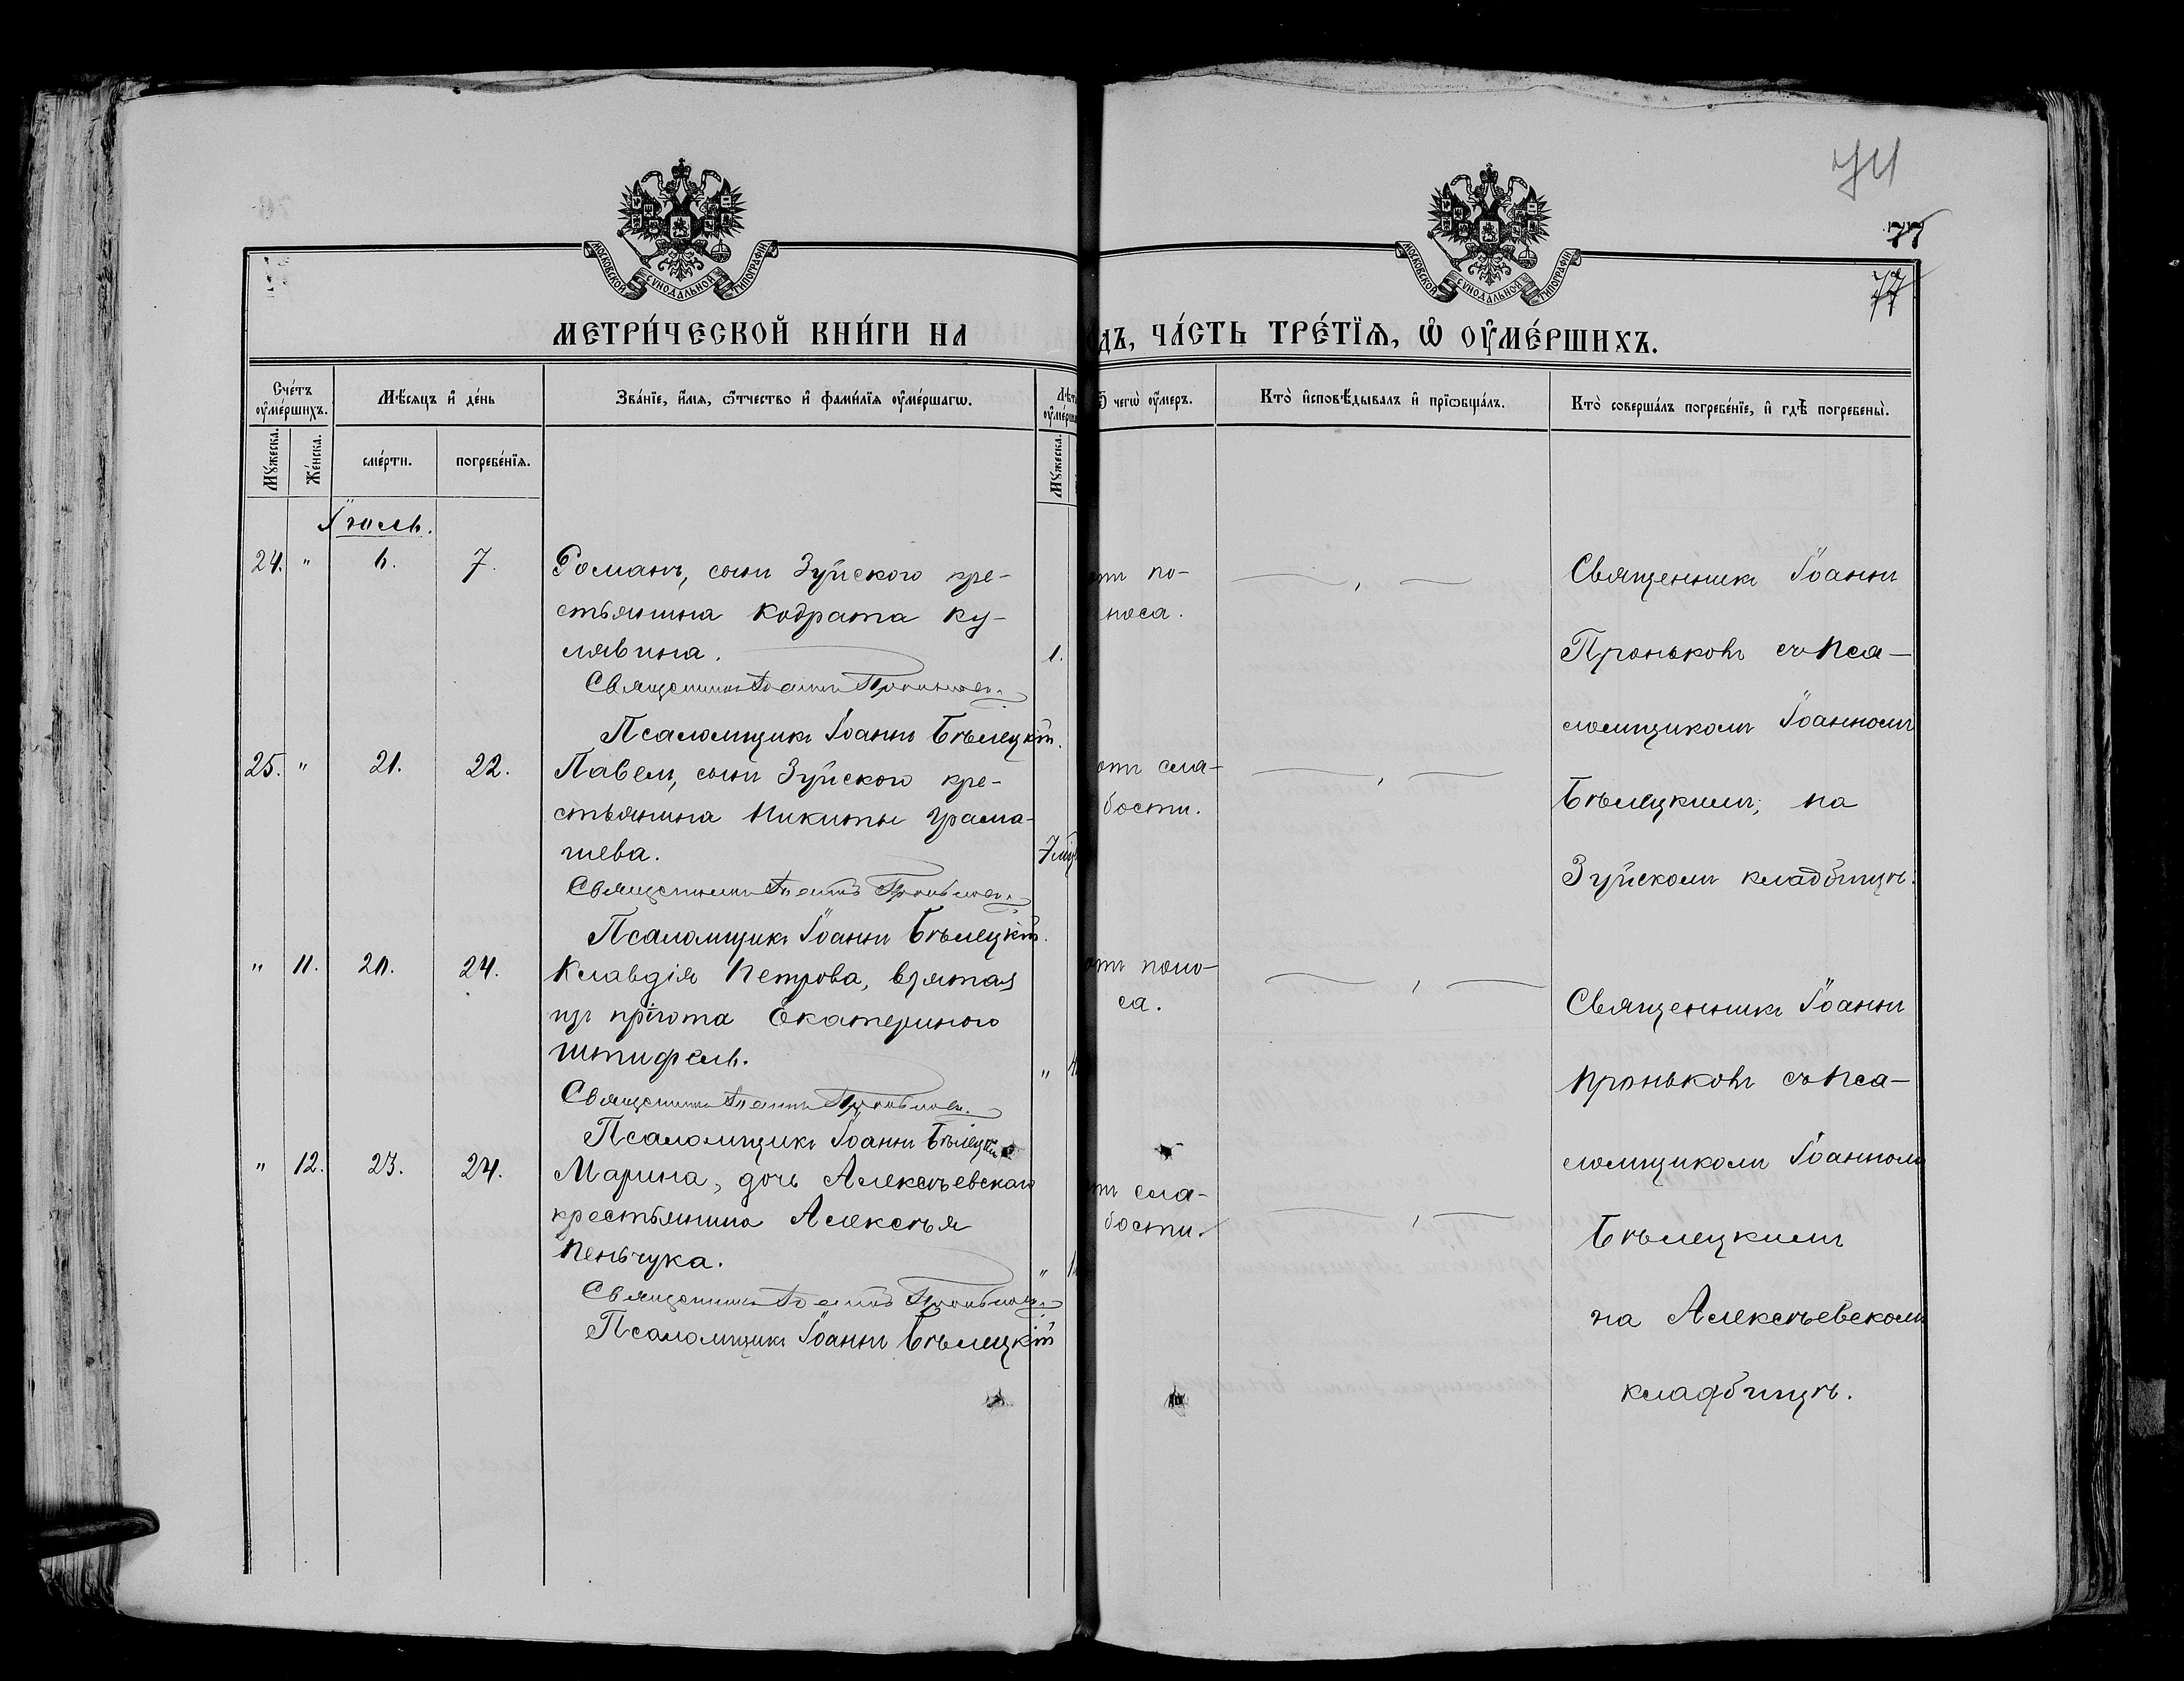 74
77
77
МОСКОВСКОЙ СѴНОДАЛЬНОЙ ТИПОГРАФІИ
МОСКОВСКОЙ СѴНОДАЛЬНОЙ ТИПОГРАФІИ
МЕТРИ́ЧЕСКОЙ КНИ́ГИ НА
ДЪ, ЧА́СТЬ ТРЕ́ТЇѦ, Ѡ҆ ОУ҆МЕ́РШИХЪ.
Сче́тъ оу҆ме́ршихъ.
Мѣ́сяцъ и҆ де́нь
Зва́нїе, и҆́мѧ, ѻ҆́тчество и҆ фами́лїѧ оу҆ме́ршагѡ.
Ѿ чегѡ̀ оу҆́меръ.
Кто̀ и҆сповѣ́дывалъ и҆ прїѡбща́лъ.
Кто̀ соверша́лъ погребе́нїе, и҆ гдѣ̀ погребены̀.
Мꙋ́жеска.
Же́нска.
сме́рти.
погребе́нїѧ.
Мꙋ́жеска.
Іюль.
24. " 6. 7. Романъ, сынъ Зуйскаго кре-
стьянина Кодрата Ку-
лявина. 1.
Священникъ Іоаннъ Проньковъ.
Псаломщикъ Іоаннъ Бѣлецкій.
отъ по-
носа.
Священникъ Іоаннъ
Проньковъ съ Пса-
ломщикомъ Іоанномъ
Бѣлецкимъ, на
Зуйскомъ кладбищѣ.
25. " 21. 22. Павелъ, сынъ Зуйскаго кре-
стьянина Никиты Грама-
чева. 7
Священникъ Іоаннъ Проньковъ.
Псаломщикъ Іоаннъ Бѣлецкій.
отъ сла-
бости.
" 11. 21. 24. Клавдія Петрова, взятая
изъ пріюта Екатериною
Штифель. "
Священникъ Іоаннъ Проньковъ.
Псаломщикъ Іоаннъ Бѣлецкій
отъ поно-
са.
Священникъ Іоаннъ
Проньковъ съ Пса-
ломщикомъ Іоанномъ
Бѣлецкимъ
на Алексѣевскомъ
кладбищѣ.
" 12. 23. 24. Марина, дочь Алексѣевскаго
крестьянина Алексѣя
Пеньчука. "
Священникъ Іоаннъ Проньковъ.
Псаломщикъ Іоаннъ Бѣлецкій
отъ сла-
бости.